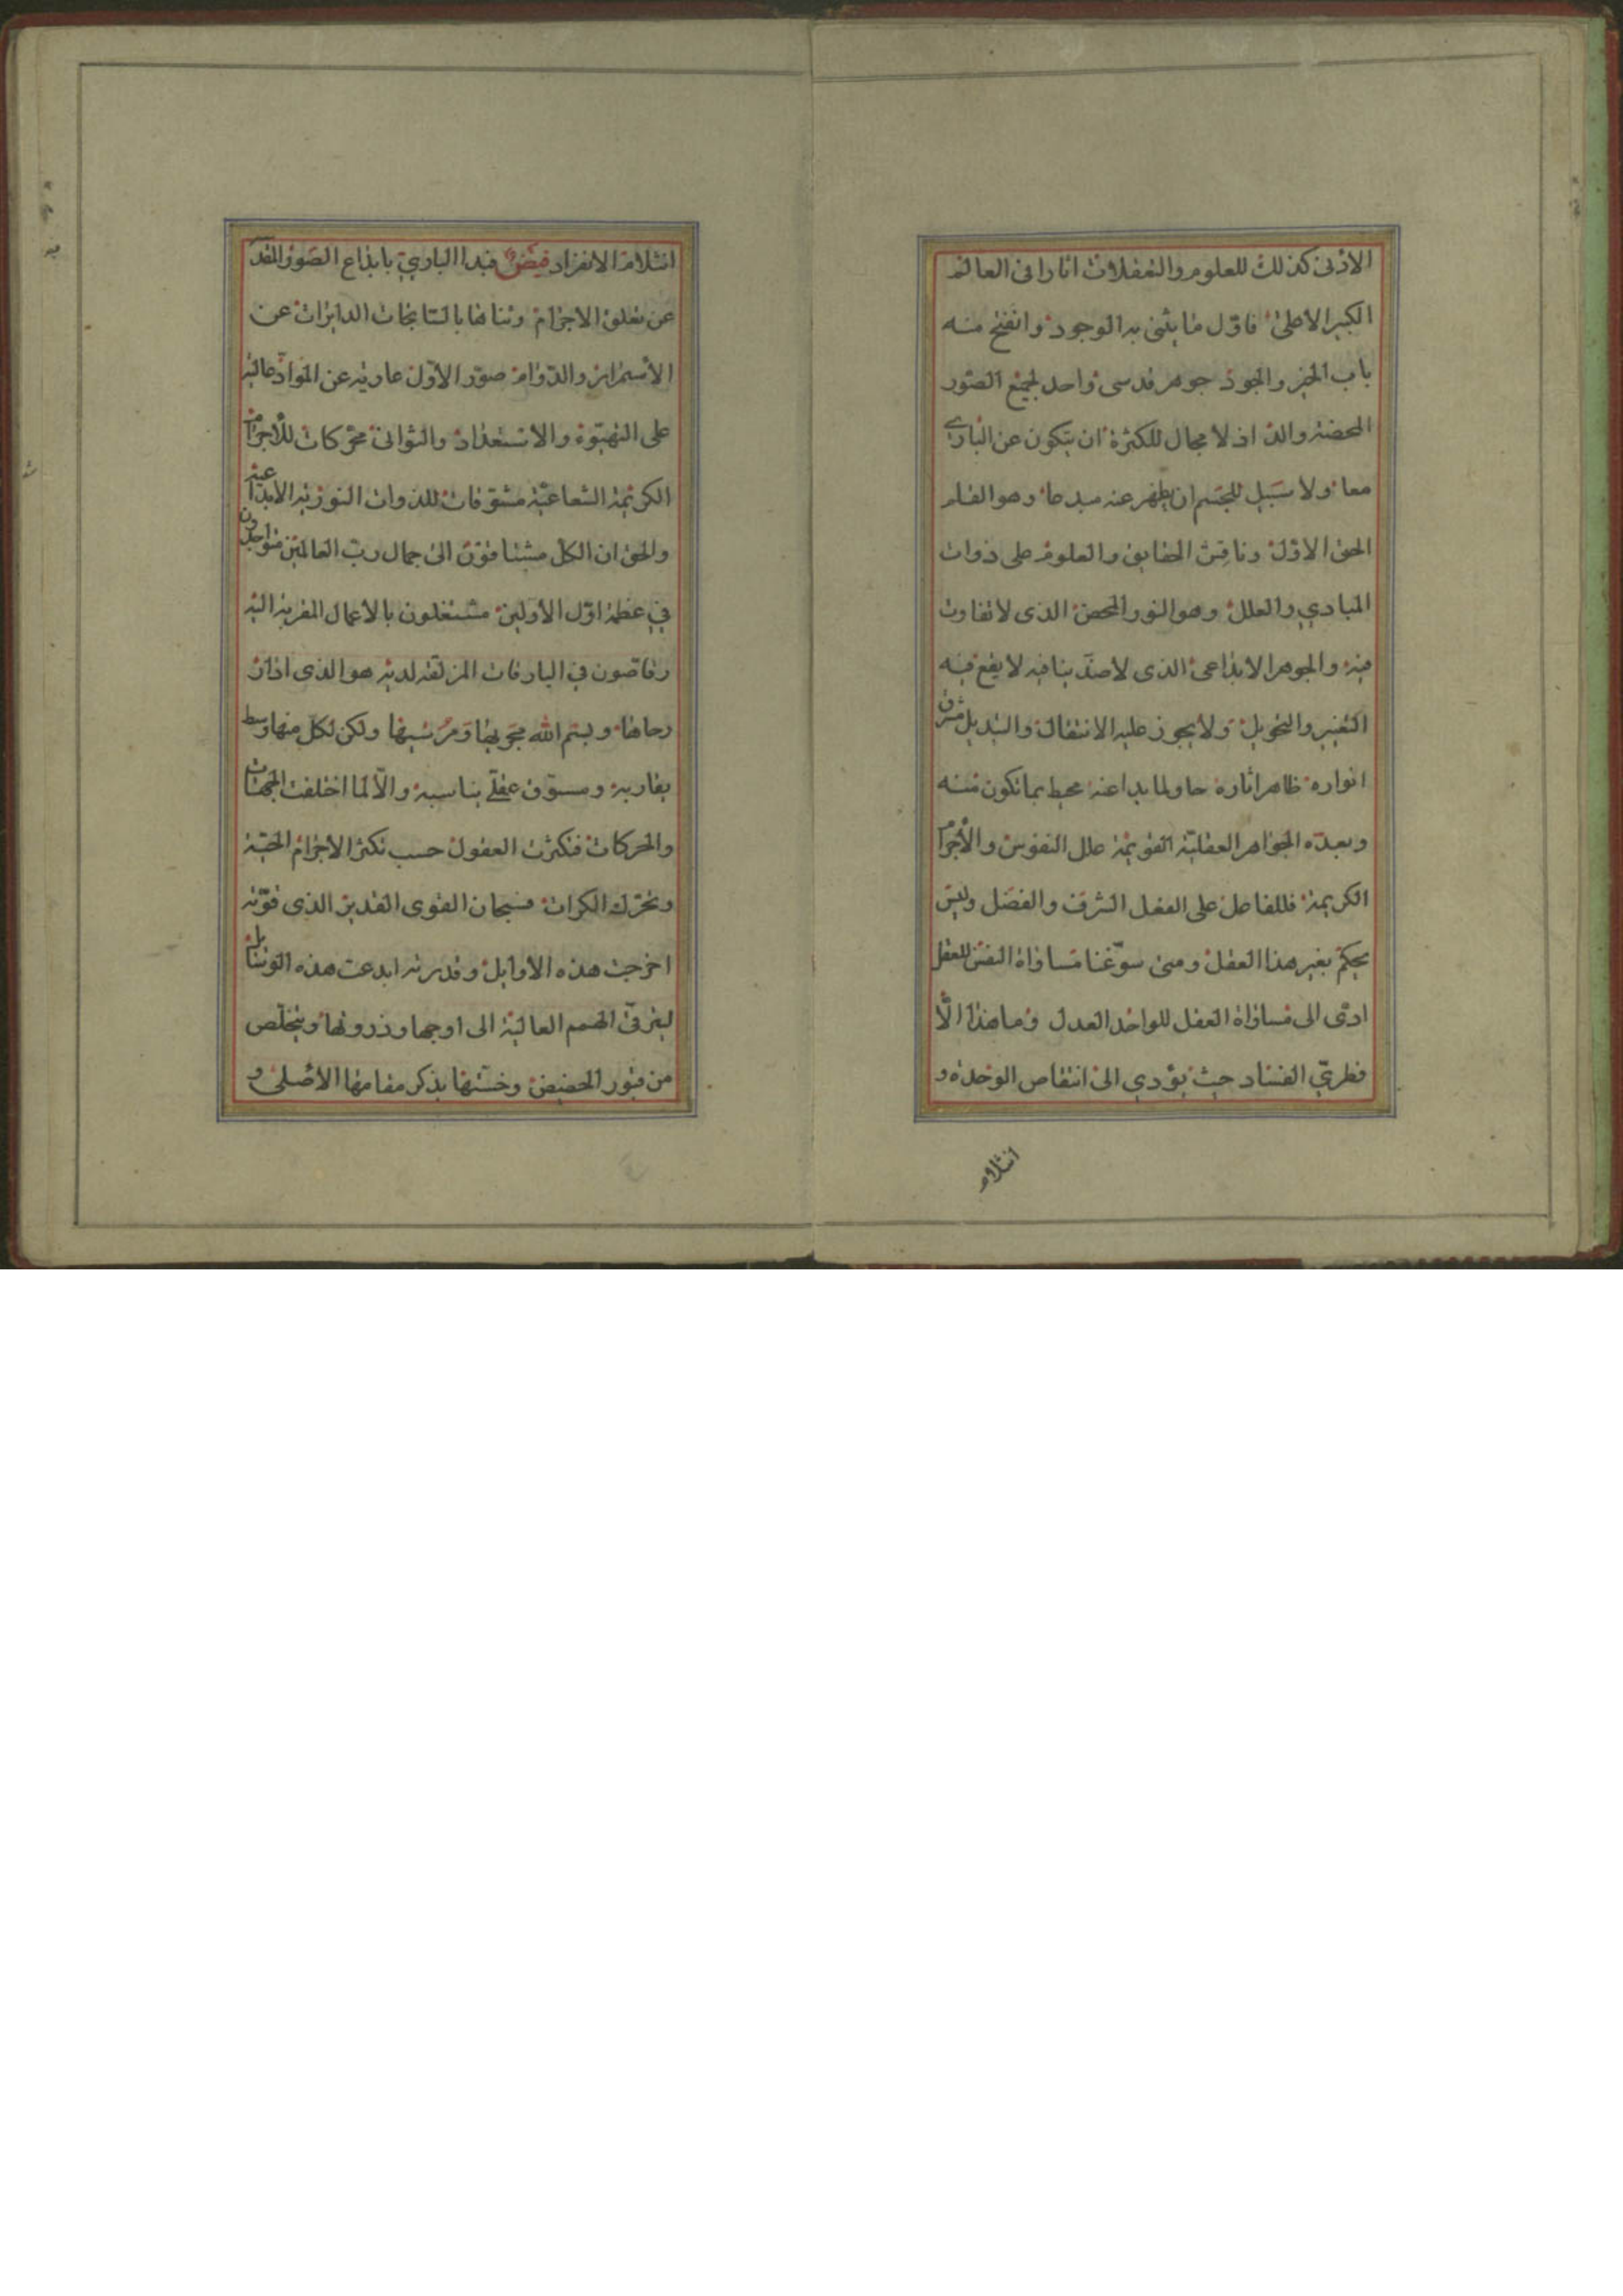 الادنى كذلك للعلوم والتعقلات اثارا فى العالم
الكبير الاعلى فاول ما يثنى به الوجود وانفتح منه
باب الخير والجود جوهر قدسى واحد لجميع الصور
المحضة والذ اذ لا مجال للكثرة ان يتكون عن البارى
معا ولا سبيل للجسم ان يظهر عنه مبدعا وهو القلم
الحق الاول وناقش الحقايق والعلوم على ذوات
المبادي والعلل وهو النور المحض الذى لا تفاوت
فيه والجوهر الابداعى الذى لا ضد ينافيه لا يقع فيه
التغيير والتحويل ولا يجوز عليه الانتقال والتبديل شرق
انواره ظاهر اثاره حاو لما بدا عنه محيط بما تكون منه
وبعده الجواهر العقلية القويمة علل النفوس والاجرام
الكريمة فللفاصل على العقل الشرف والفضل وليس
يحكم بغير هذا العقل ومتى سوغنا مساواة النفس للعقل
ادى الى مساواة العقل للواحد العدل وما هذا الا
فطري الفساد حيث يؤدي الى انتقاص الوحدة و
انثلام
انثلام الانفراد فيض فبدا الباري بابداع الصور المقد
عن تعلق الاجرام وتناهما بالسابحات الدايرات عن
الاستمرار والدوام صور الاول عارية عن المواد عالية
على التهيؤ والاستعداد والثوانى محركات للاجرام
الكريمة الشعاعية مشوقات للذوات النورية الابداعية
والحق ان الكل مشتاقون الى جمال رب العالمين متواجدون
في عظمة اول الاولين مشتغلون بالاعمال المقربة اليه
رقاصون في البارقات المزلفة لديه هو الذى ادار
رحاها وبسم الله مجريها ومرسيها ولكن لكل منها وسط
يقاربه ومسوق عقلي يناسبه والا لما اختلفت الجهات
والحركات فتكثرت العقول حسب تكثر الاجرام الحية
وتحرك الكرات فسبحان القوى القدير الذى قوته
اخرجت هذه الاوايل وقدرته ابدعت هذه الوسايل
ليترقى الهمم العالية الى اوجها وذروتها ويتخلص
من قبور الحضيض وخستها بذكر مقامها الاصلى و